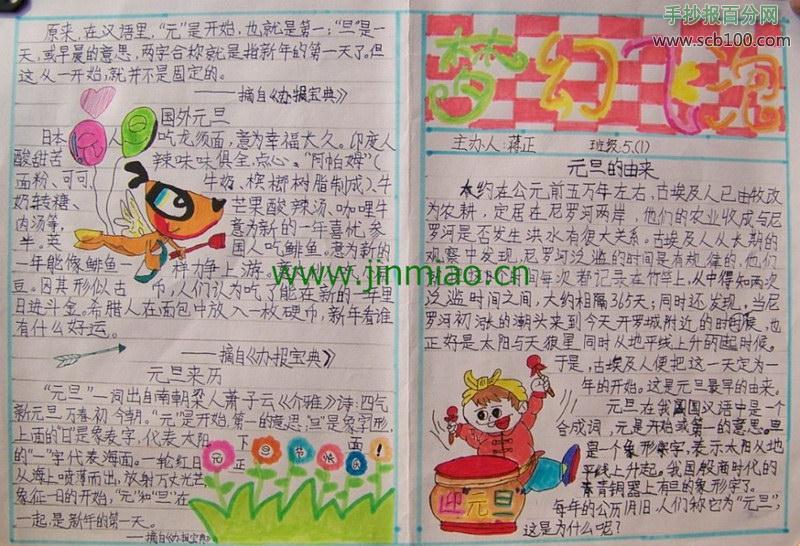 原来,在汉语里,“元”是开始,也就是第一;“旦”是一
天,或早晨的意思,两字合称就是指新年的第一天了。但
这从一开始,就并不是固定的。
——摘自《办报宝典》
国外元旦
日本 人 吃龙须面,意为幸福大久。印度人
酸甜苦 辣味味俱全,点心。“阿帕姆”(
面粉、可可, 牛奶、槟榔树脂制成)、牛
奶转糖、 芒果酸辣汤、咖哩牛
肉汤等, 意为新的一年喜忧参
半。英 国人吃鲱鱼。意为新的
一年能像鲱鱼一 样力争上游。
豆。因其形似古 币,人们认为吃了能在新的一年里
日进斗金。希腊人在面包中放入一枚硬币,新年看谁
有什么好运。
——摘自《办报宝典》
元旦来历
“元旦”一词出自南朝梁人萧子云《介雅》诗:四气
新元旦,万春初今朝。“元”是开始,第一的意思,“旦”是象形字,
上面的“日”是象表字,代表太阳 下面
的“一”字代表海面。一轮红日 正
从海上喷薄而出,放射万丈光芒
象征一日的开始,“元”和“旦”在
一起,是新年的第一天。
——摘自《办报宝典》
元旦快乐!
手抄报百分网
www.scb100.com
梦幻飞漫
主办人:蒋正 班级:5.(1)
元旦的由来
大约在公元前五万年左右,古埃及人已由牧改
为农耕,定居在尼罗河两岸,他们的农业收成与尼
罗河是否发生洪水有很大关系。古埃及人从长期的
观察中发现,尼罗河泛滥的时间是有规律的,他们
时间每次都记录在竹竿上,从中得知两次
泛滥时间之间,大约相隔365天;同时还发现,当尼
罗河初涨的潮头来到今天开罗城附近的时候,也
正好是太阳与天狼星同时从地平线上升的起时候。
于是,古埃及人便把这一天定为一
年的开始。这是元旦最早的由来。
元旦在我国汉语中是一个
合成词,元是开始或第一的意思。旦
是一个象形字,表示太阳从地
平线上升起。我国殷商时代的
青铜器上有旦的象形字了。
每年的公历1月1日,人们称它为“元旦”,
这是为什么呢?
迎“元旦”
www.jinmiao.cn